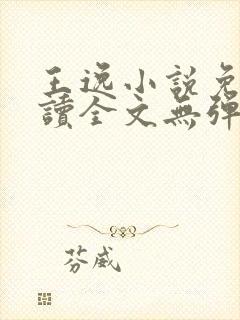 王逸小說免
讀全文無彈
芬葳